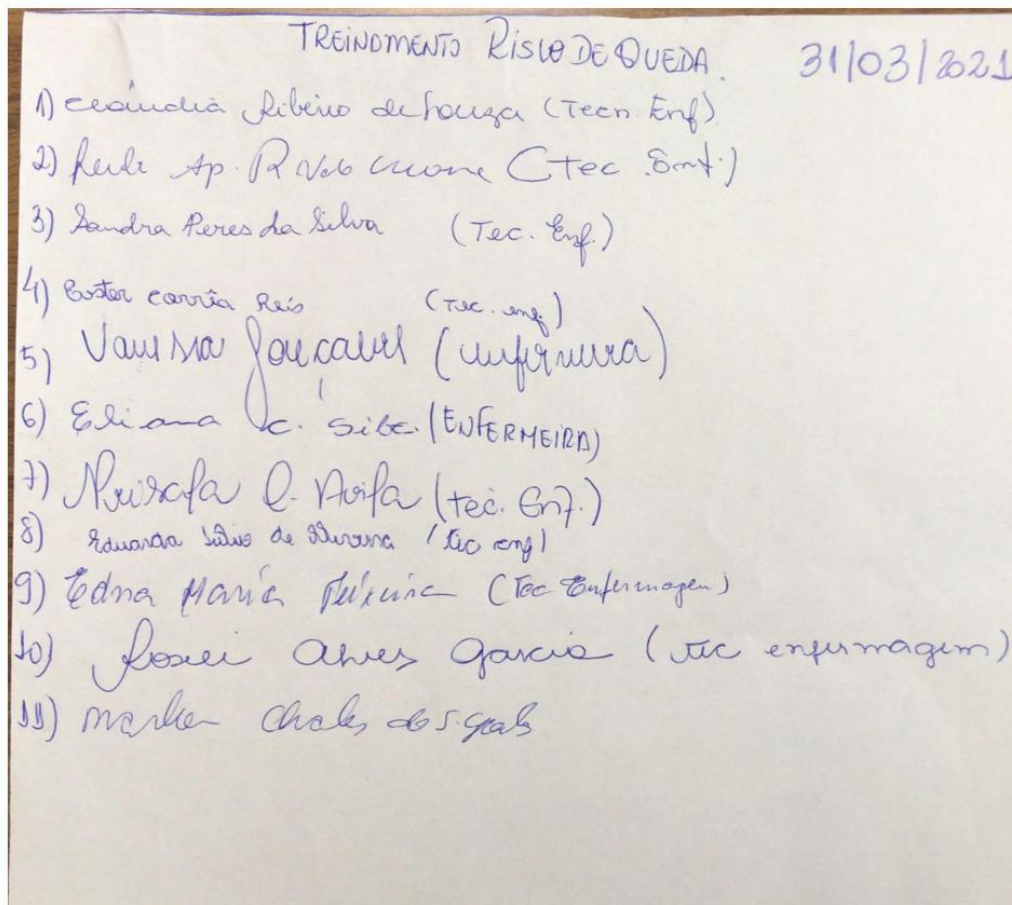 TREINAMENTO RISCO DE QUEDA. 31/03/2021
1) Claudia Ribeiro de Souza (Tecn. Enf)
2) Ap. R (Tec. Enf.)
3) Sandra Peres da Silva (Tec. Enf.)
4) Ester Corrêa Reis (Tec. enf.)
5) Vanessa Gonçalves (enfermeira)
6) Eliana C. Silva (ENFERMEIRA)
7) (tec. Enf.)
8) Eduarda de Oliveira (tec enf)
9) Edna Maria Teixeira (Tec Enfermagem)
10) Rosei Alves Garcia (tec enfermagem)
11)